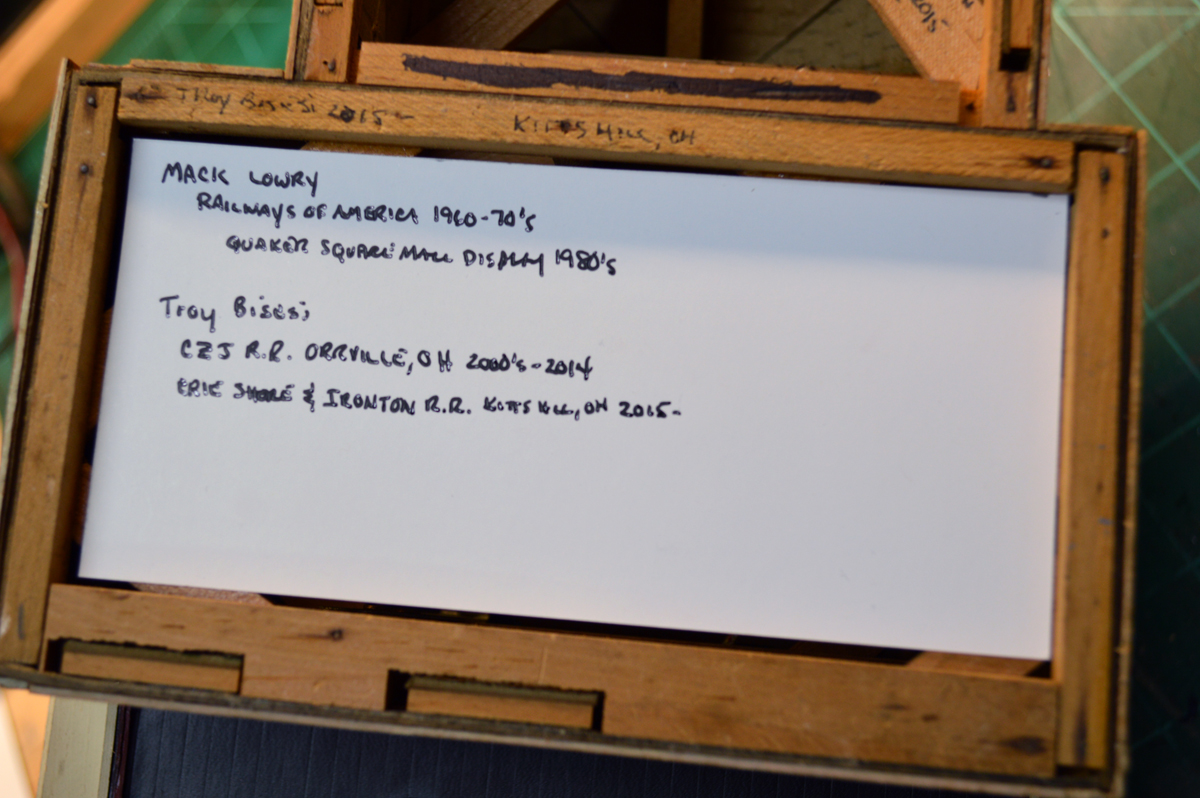 2015
Troy Bisesi 2015-
KITTS HILL, OH
MACK LOWRY
RAILWAYS OF AMERICA 1960-70's
QUAKER SQUARE MALL DISPLAY 1980's
Troy Bisesi
CZJ R.R. ORRVILLE, OH 2000's-2014
ERIE SHORE & IRONTON R.R. KITTS HILL, OH 2015-